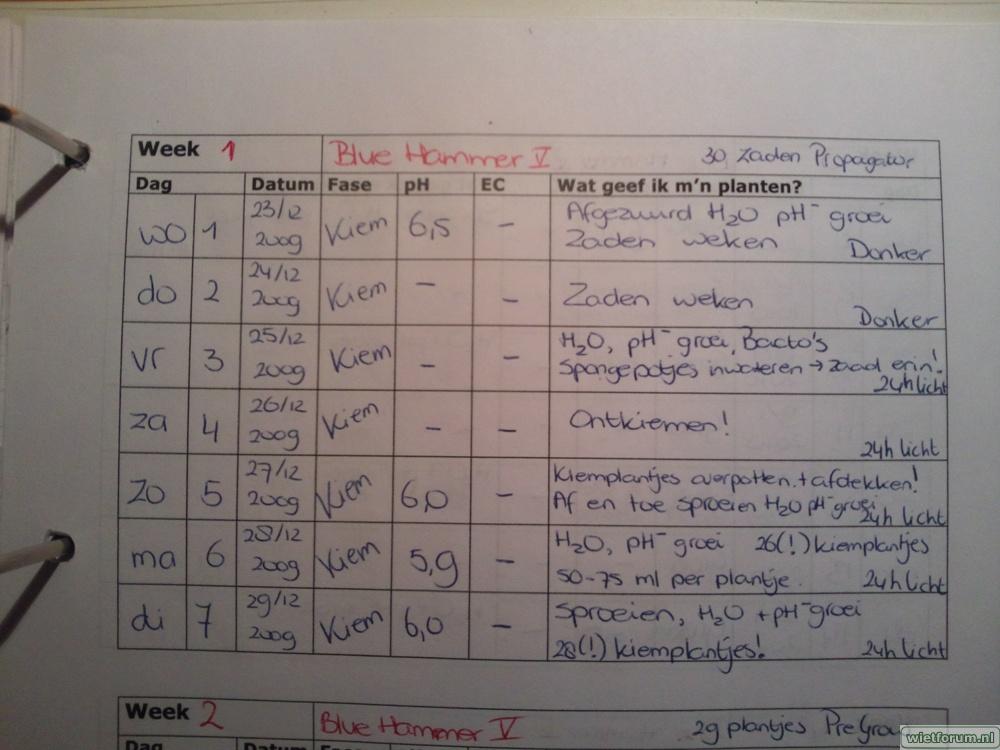 Week 1 Blue Hammer V 30 zaden Propagator
Dag Datum Fase pH EC Wat geef ik m'n planten?
wo 1 23/12 2009 Kiem 6,5 – Afgezuurd H₂O pH⁻ groei
Zaden weken Donker
do 2 24/12 2009 Kiem – – Zaden weken
Donker
vr 3 25/12 2009 Kiem – – H₂O, pH⁻ groei, Bacto's
Spongepotjes inwateren → zaad erin!
24h licht
za 4 26/12 2009 Kiem – – Ontkiemen!
24h licht
zo 5 27/12 2009 Kiem 6,0 – Kiemplantjes overpotten + afdekken!
Af en toe sproeien H₂O pH⁻ groei
24h licht
ma 6 28/12 2009 Kiem 5,9 – H₂O, pH⁻ groei 26(!) kiemplantjes
50-75 ml per plantje. 24h licht
di 7 29/12 2009 Kiem 6,0 – Sproeien, H₂O + pH⁻ groei
28(!) kiemplantjes! 24h licht
Week 2 Blue Hammer V 29 plantjes
Dag Datum Fase pH EC Wat geef ik m'n planten?
wietforum.nl